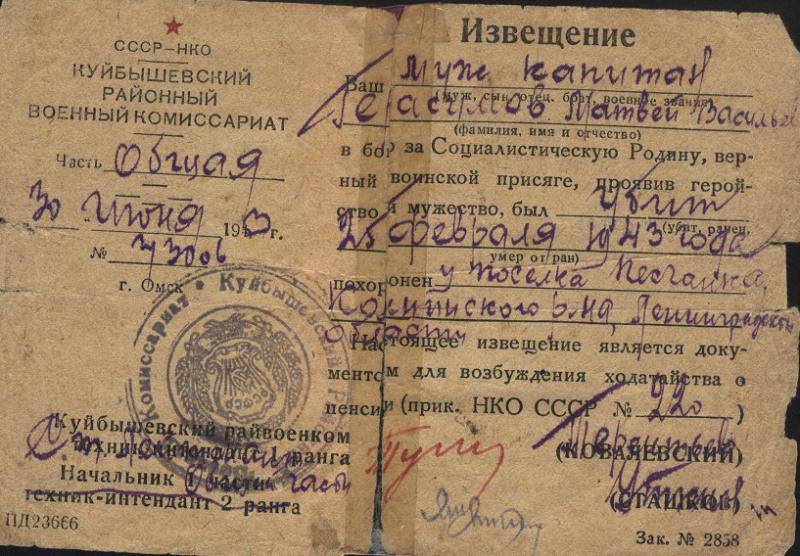 СССР–НКО
КУЙБЫШЕВСКИЙ
РАЙОННЫЙ
ВОЕННЫЙ КОМИССАРИАТ
Часть Общая
30 июня 1943 г.
№
г. Омск
Куйбышевский райвоенком
техник-интендант 1 ранга
Начальник 1 части
техник-интендант 2 ранга
ПД23666
Извещение
Ваш муж капитан
(муж, сын, отец, брат, военное звание)
Герасимов Матвей Василье
(фамилия, имя и отчество)
в бою за Социалистическую Родину, вер-
ный воинской присяге, проявив герой-
ство и мужество, был убит
(убит, ранен,
25 февраля 1943 года
умер от ран)
похоронен у поселка Песчанка,
Ленинградской
области
Настоящее извещение является доку-
ментом для возбуждения ходатайства о
пенсии (прик. НКО СССР № 220)
(КОВАЛЕВСКИЙ)
(СТАШКОВ)
Зак. № 2858
Комиссариат • Куйбышевский